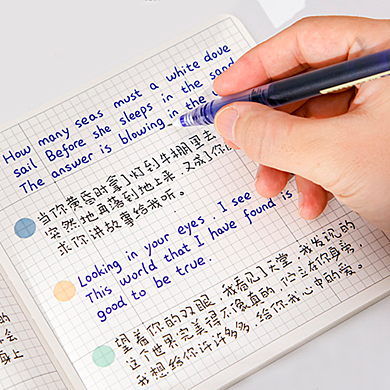 How many seas must a white dove
sail Before she sleeps in the sand
The answer is blowing in the
当你黄昏时拿了灯到牛棚里去
突然地再落到地上来，又成了你
求你讲故事给我听。
Looking in your eyes. I see
This world that I have found is
good to be true.
望着你的双眼，我看见了天堂，我发现的
这个世界完美得不像真的，伫立在你身旁，
我想给你许许多多，给你我心中的爱。